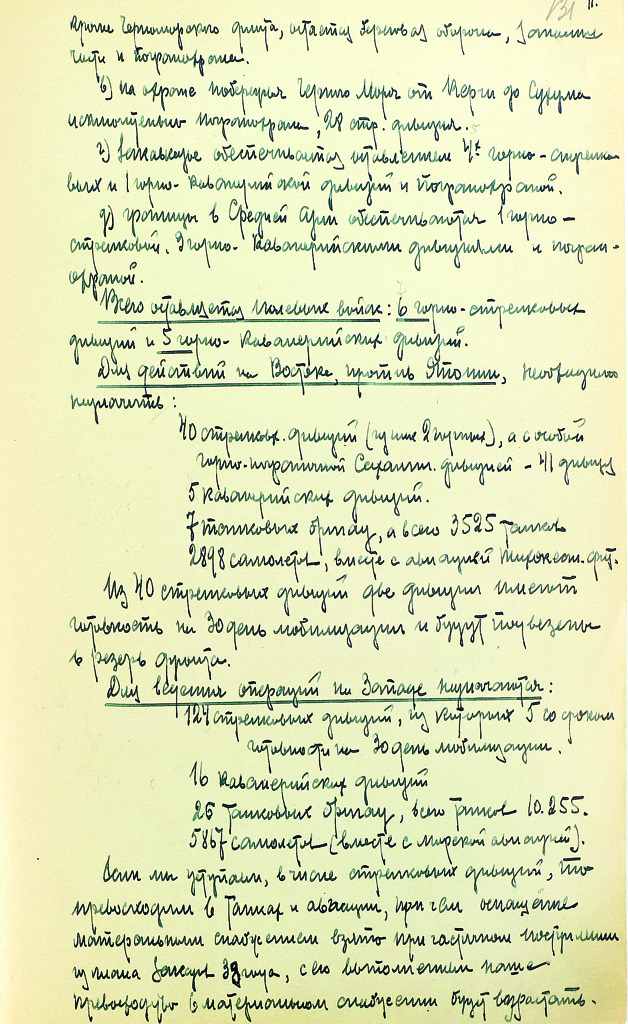 131 11.
кроме Черноморского флота, остается береговая оборона, запасные
части и погранохрана.
в) на охране побережья Черного Моря от Керчи до Сухума
исключительно погранохрана, 28 стр. дивизия.
г) Закавказье обеспечивается оставлением 4х горно-стрелко-
вых и 1 горно-кавалерийской дивизий и Погранохраной.
д) границы в Средней Азии обеспечиваются 1 горно-
стрелковой, 3 горно-кавалерийскими дивизиями и погран-
охраной.
Всего оставляется полевых войск: 6 горно-стрелковых
дивизий и 5 горно-кавалерийских дивизий.
Для действий на Востоке, против Японии, необходимо
назначить:
40 стрелков. дивизий (из них 2 горных), а с особой
горно-пограничной Сахалин. дивизией - 41 дивиз
5 кавалерийских дивизий.
7 танковых бригад, а всего 3525 танков
2898 самолетов, вместе с авиацией Тихоокеан. флот.
Из 40 стрелковых дивизий две дивизии имеют
готовность на 30 день мобилизации и будут подвезены
в резерв фронта.
Для ведения операций на Западе назначаются:
124 стрелковых дивизий, из которых 5 со сроком
готовности на 30 день мобилизации.
16 кавалерийских дивизий
26 танковых бригад, всего танков 10.255.
5867 самолетов (вместе с морской авиацией).
Если мы уступаем, в числе стрелковых дивизий, то
превосходим в танках и авиации, при чем оснащение
материальным снабжением взято при частичном поступлении
из плана заказов 38 года, с его выполнением наше
превосходство в материальном снабжении будет возрастать.